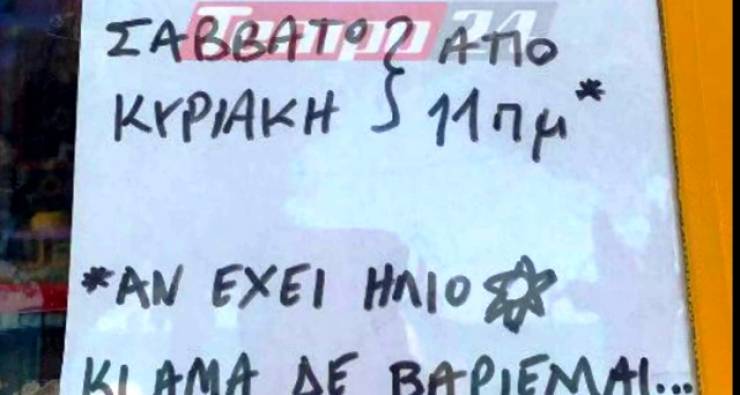 Tempo 24
ΣΑΒΒΑΤΟ } ΑΠΟ
ΚΥΡΙΑΚΗ } 11πμ*
*ΑΝ ΕΧΕΙ ΗΛΙΟ
ΚΙ ΑΜΑ ΔΕ ΒΑΡΙΕΜΑΙ...